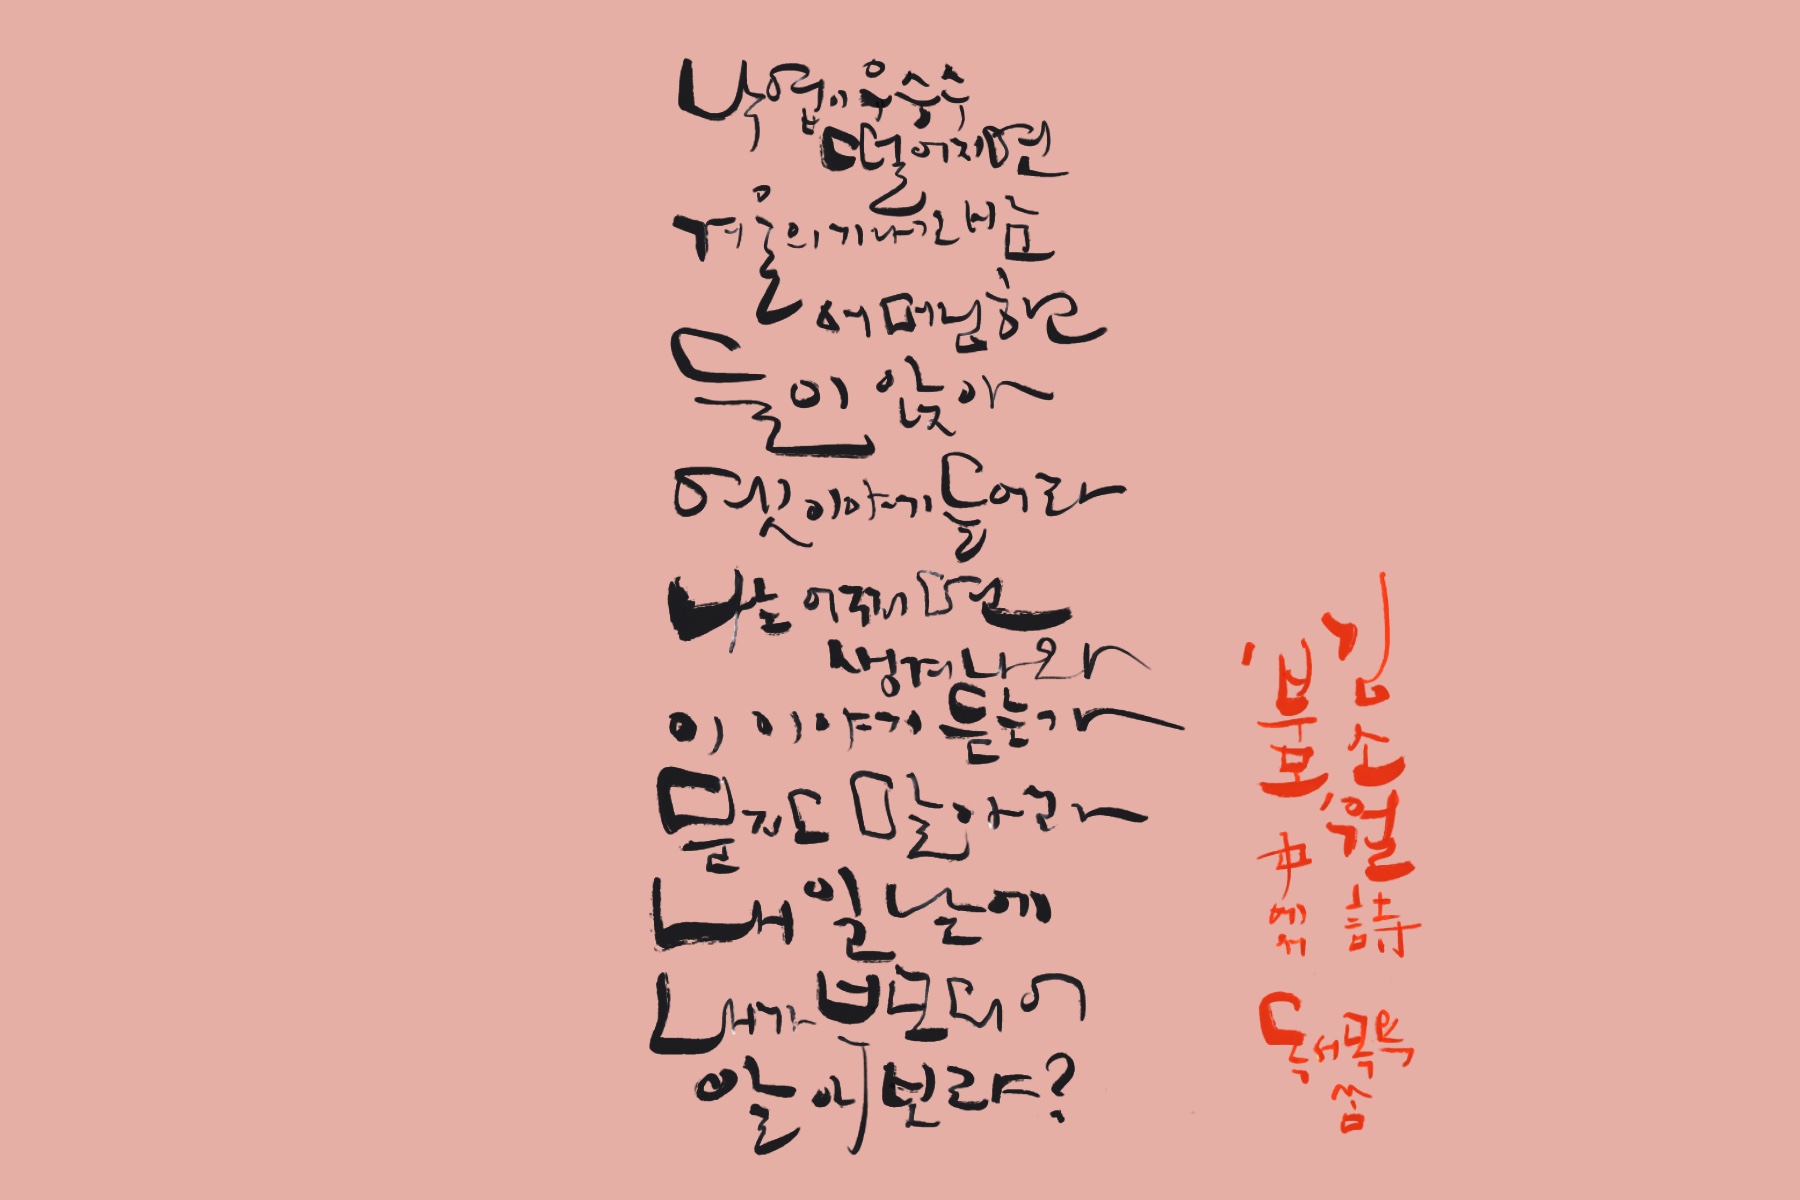 낙엽이 우수수
떨어지면
겨울의 기나긴 밤
어머님하고
둘이 앉아
옛이야기 들어라
나는 어쩌면
생겨나와
이 이야기 듣는가
묻지도 말아라
내일날에
내가 부모되어
알아보랴?
김소월 詩
'부모' 中에서
독서목욕
씀